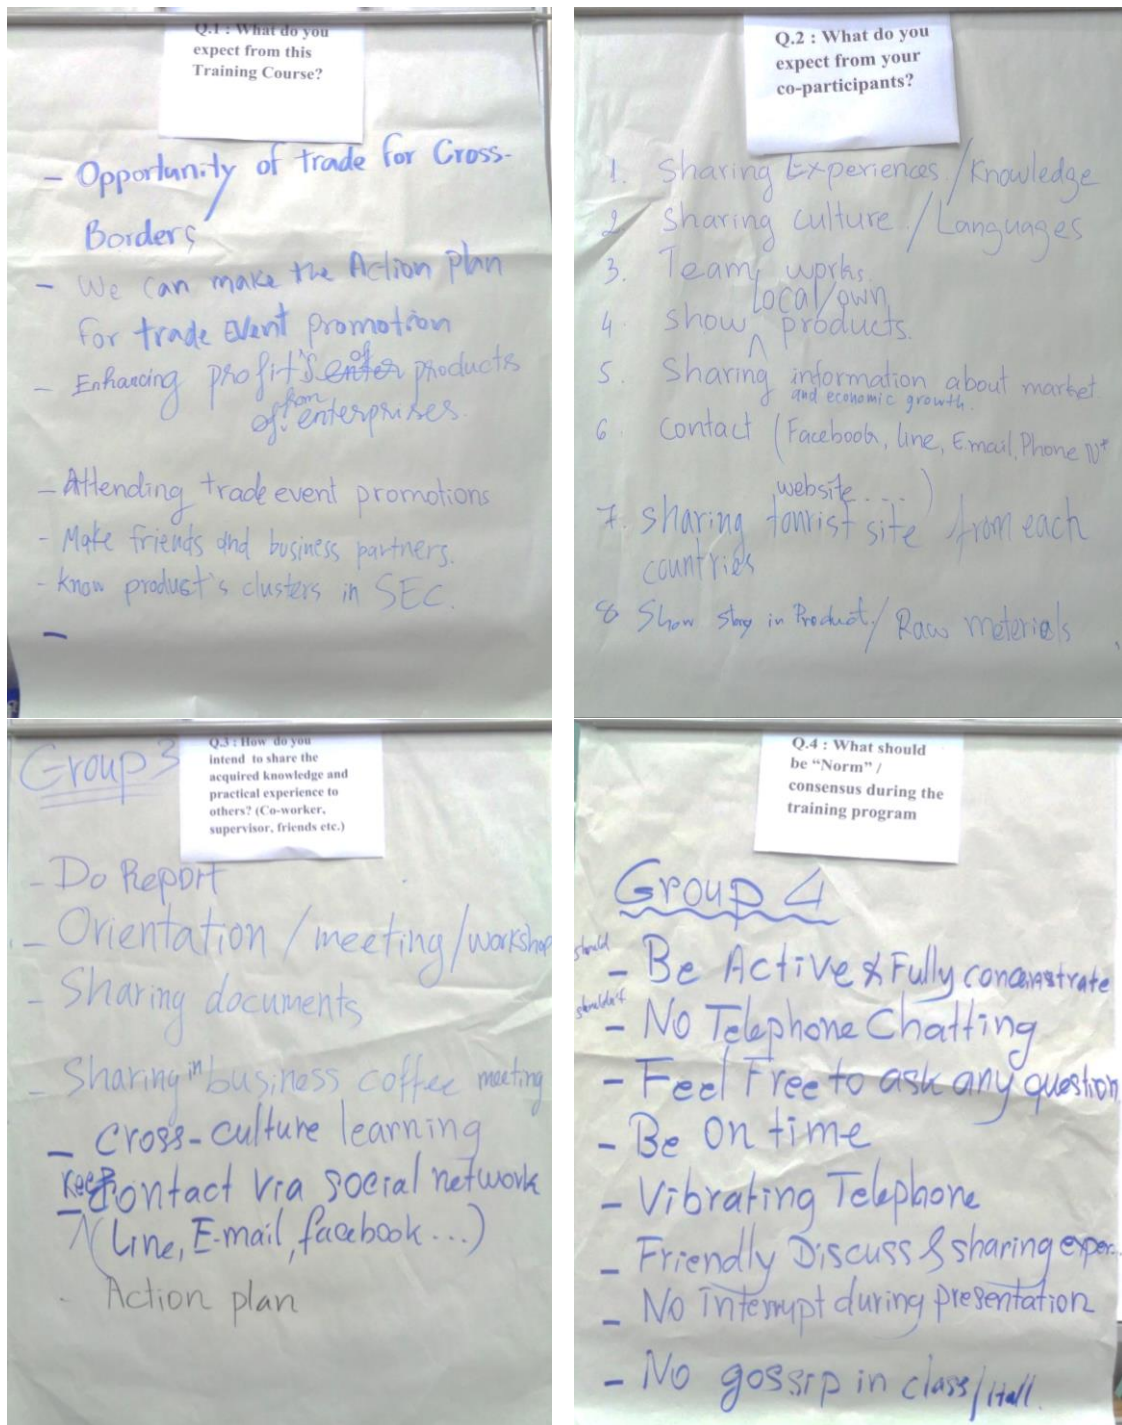 Q.1 : What do you
expect from this
Training Course?
- Opportunity of trade for Cross-
Borders
- We can make the Action plan
for trade Event promotion
- Enhancing profit's of products
from
of enterprises.
- Attending trade event promotions
- Make friends and business partners.
- Know product's clusters in SEC.
-
Q.2 : What do you
expect from your
co-participants?
1. Sharing Experiences / Knowledge
2 Sharing culture / Languages
3. Team works.
local/own
4. show products.
5. Sharing information about market
and economic growth.
6. contact (Facebook, line, Email, Phone N°
website....)
7. sharing tourist site from each
countries
8 Show in Product / Raw materials
Group 3
Q.3 : How do you
intend to share the
acquired knowledge and
practical experience to
others? (Co-worker,
supervisor, friends etc.)
- Do Report
- Orientation / meeting / workshop
- Sharing documents
- Sharing in business coffee meeting
- Cross-culture learning
- Keep Contact via social network
(Line, E-mail, facebook...)
- Action plan
Q.4 : What should
be “Norm” /
consensus during the
training program
Group 4
should
- Be Active & Fully concenstrate
shouldn't
- No Telephone Chatting
- Feel Free to ask any question
- Be On time
- Vibrating Telephone
- Friendly Discuss & sharing exper..
- No interrupt during presentation
- No gossip in class/Hall.